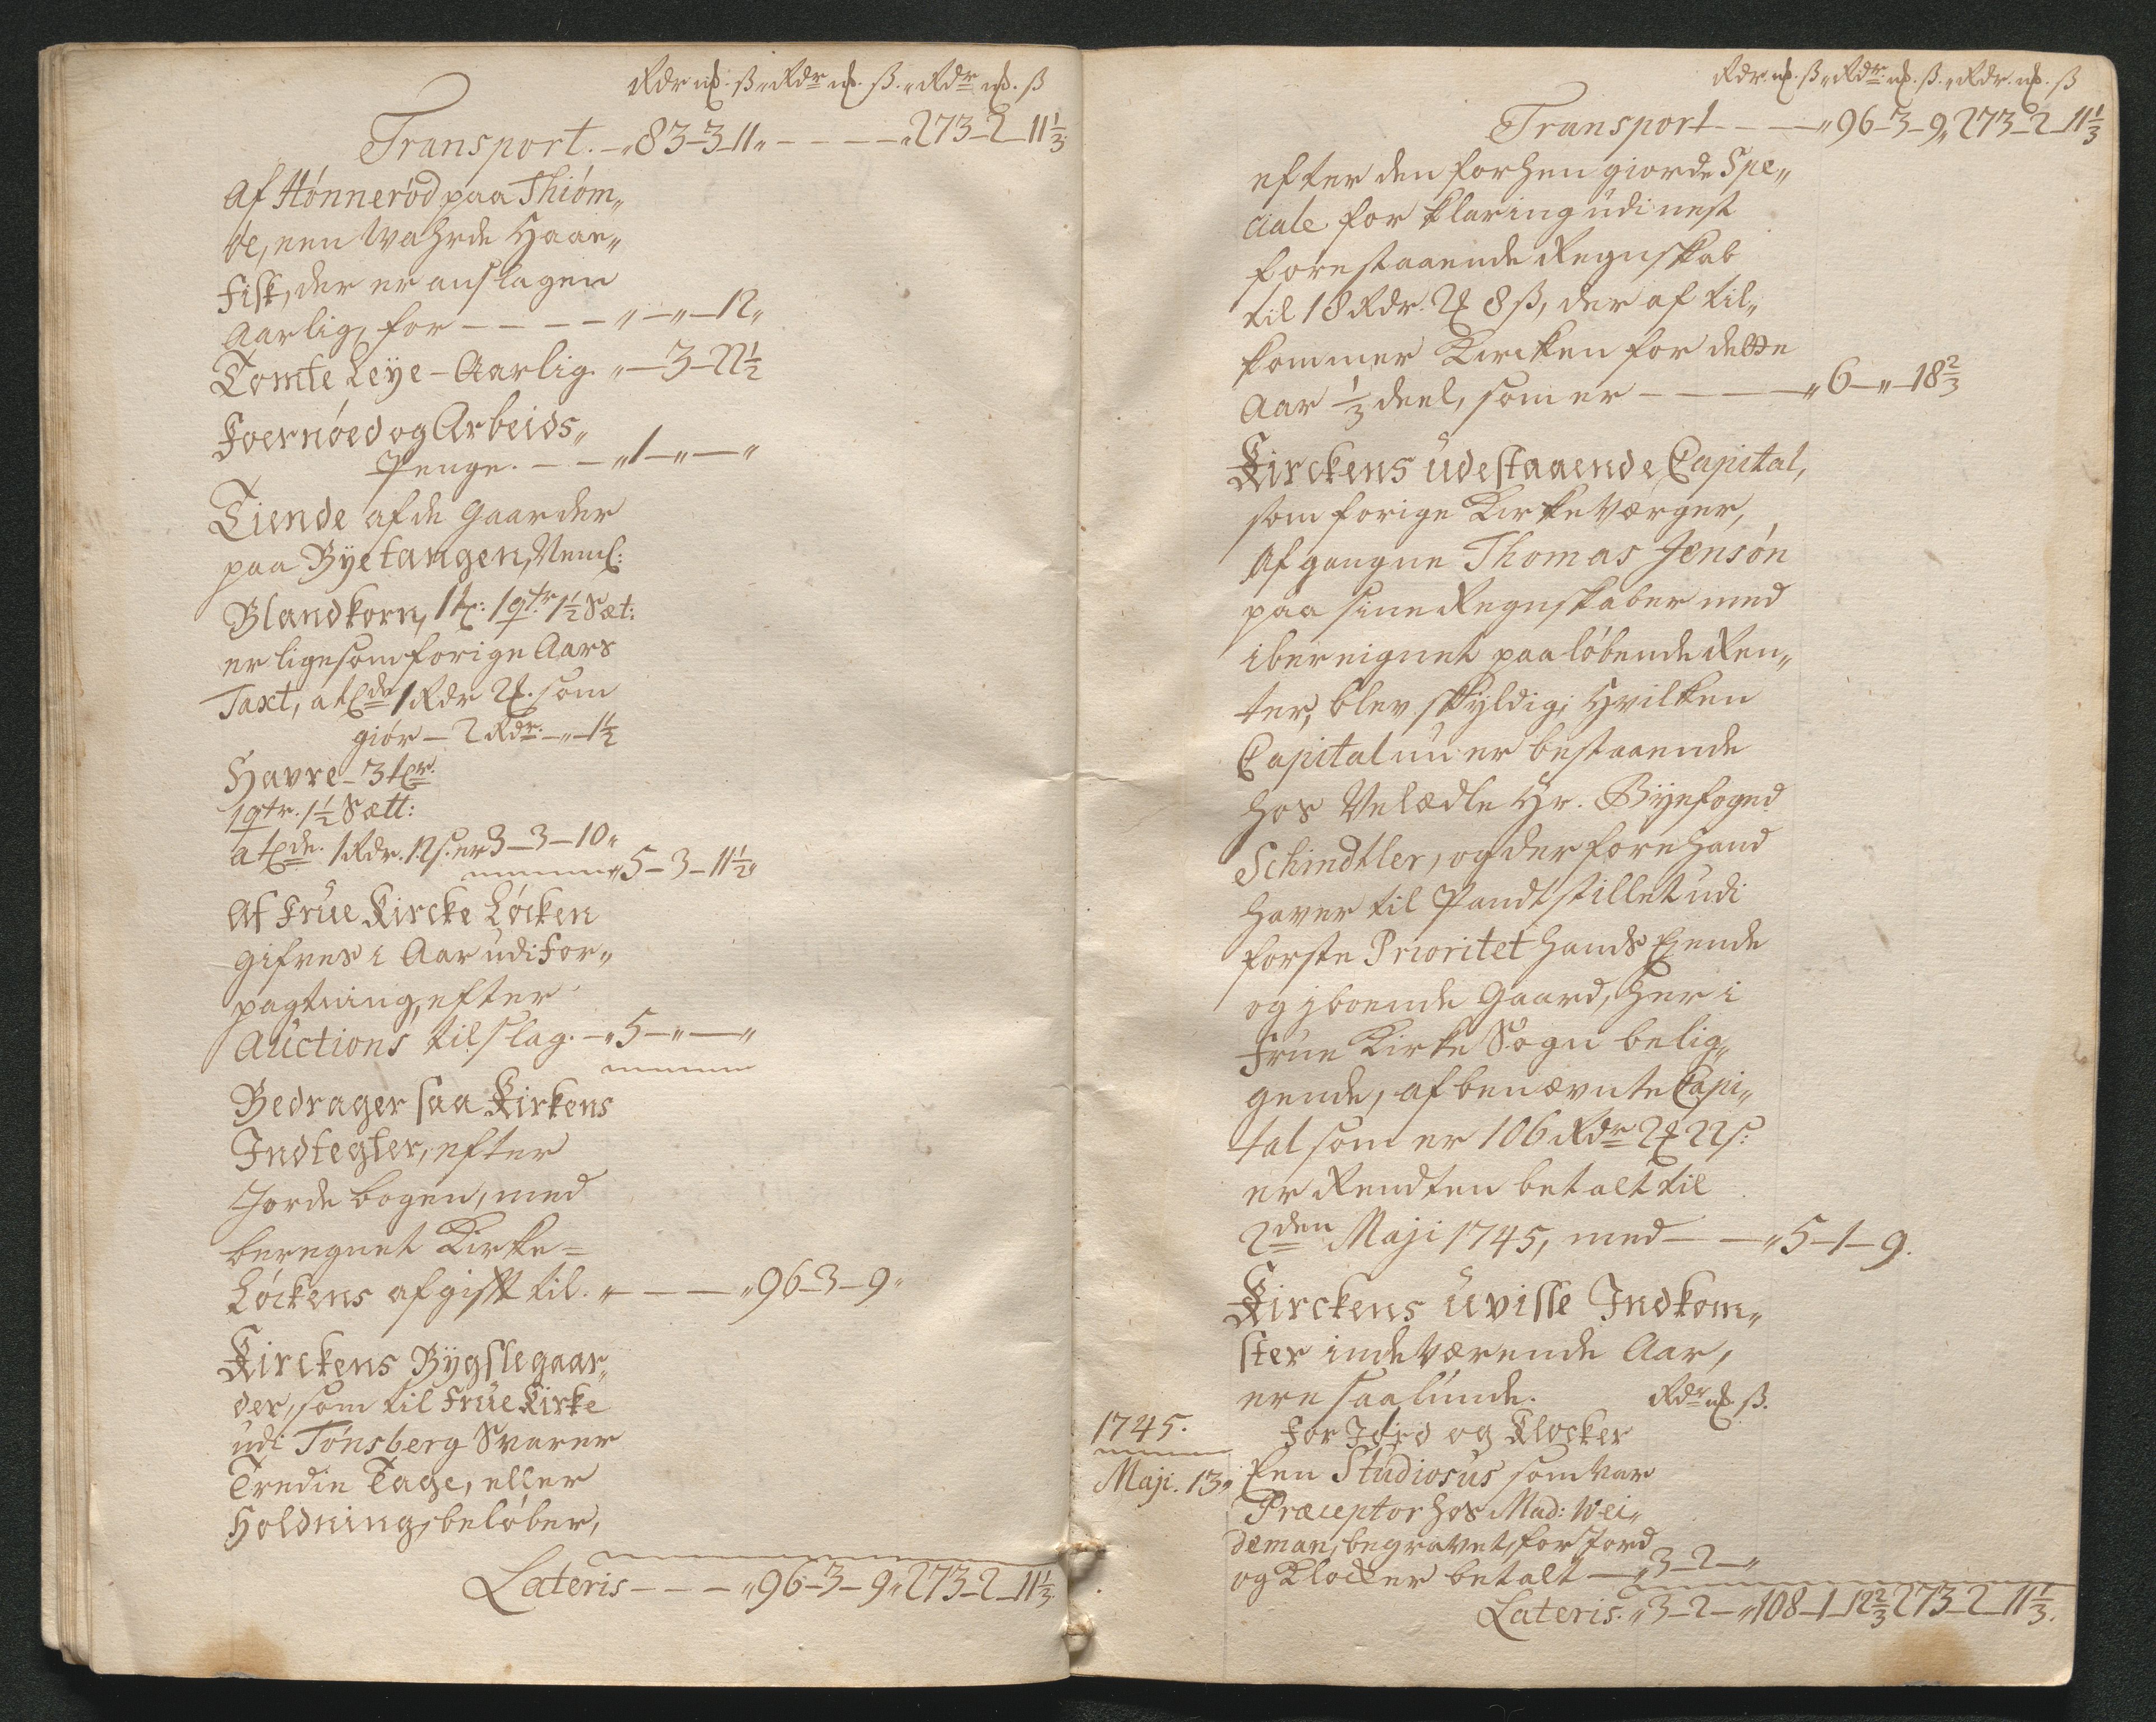 Rdr mk. ß „ Rdr mk. ß. „ Rdr mk. ß
Transport. — „ 83–3–11 „ – – – – – „ 273–2–11 1/3
Af Hønnerød paa Thiøm„
øe, een Wahrde Haae„
fisk, der er anslagen
Aarlig, for – – – – „–„–12„
Tomte Leÿe – Aarlig. „–3–22 1/2
Foernøed og Arbeids„
Penge. – – – „1–„–„
Tiende af de Gaarder
paa Bÿetangen, Neml:
Blandkorn, 1 t: 1 qtr 1 1/2 Sæt:
er ligesom forige Aars
Taxt, a tde 1 Rdr 2 mk. som
giør – 2 Rdr. – „ – 1 1/2
Havre – 3 tr.
1 qtr. 1 1/2 Sætt:
a tde. 1 Rdr. 12 s. er 3–3–10„
„5–3–11 1/2„
Af Frue Kircke Løcken
gifves i Aar udi For„
pagtning, efter
Auctions tilslag. – „5–„–„
Bedrager saa Kirkens
Indtegter, efter
Jordebogen, med
beregnet Kirke=
Løckens afgift til. „ – – – „96–3–9„
Kirckens Bÿgslegaar„
der, som til Frue Kirke
udi Tønsberg Svarer
Tredie Tage, eller
Holdning, beløber,
Lateris – – – „96–3–9„273–2–11 1/3.
Rdr. mk. ß „ Rdr. mk. ß. „ Rdr. mk. ß
Transport – – – „96–3–9„273–2–11 1/3
efter den forhen giorde Spe„
ciale forklaring udi nest
forestaaende Regnskab
til 18 Rdr. 2 mk 8 ß, der af til„
kommer Kircken for dette
Aar 1/3 deel, som er – – – – „6–„–18 2/3
Kirckens udestaaende Capital,
som forige Kirkeværger,
Afgangne Thomas Jensøn
paa sine Regnskaber med
ibereignet paaløbende Ren„
ter, blev skÿldig; Hvilken
Capital nu er bestaaende
hos Velædle Hr. Bÿefoged
Schindtler, og der forehand
haver til Pandt stillet udi
første Prioritet hands Ejende
og jboende Gaard, her i
Frue Kirke Sogn belig„
gende, af benævnte Capi„
tal som er 106 Rdr 2 mk 22 s:
er Rendten betalt til
2den Maji 1745, med – – „5–1–9.
Kirckens uvisse Indkom„
ster indeværende Aar,
ere saalunde. Rdr mk ß.
1745. For Jord og Klocker
Maji. 13„ Een Studiosus som var
Præceptor hos Mad: Wei„
deman, begravet, for Jord
og Klocker betalt – „3–2–„
Lateris. „3–2–„108–1–12 2/3 273–2–11 1/3.